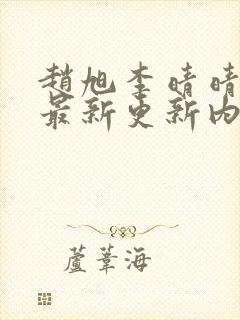 趙旭李晴晴
最新更新內
蘆葦海